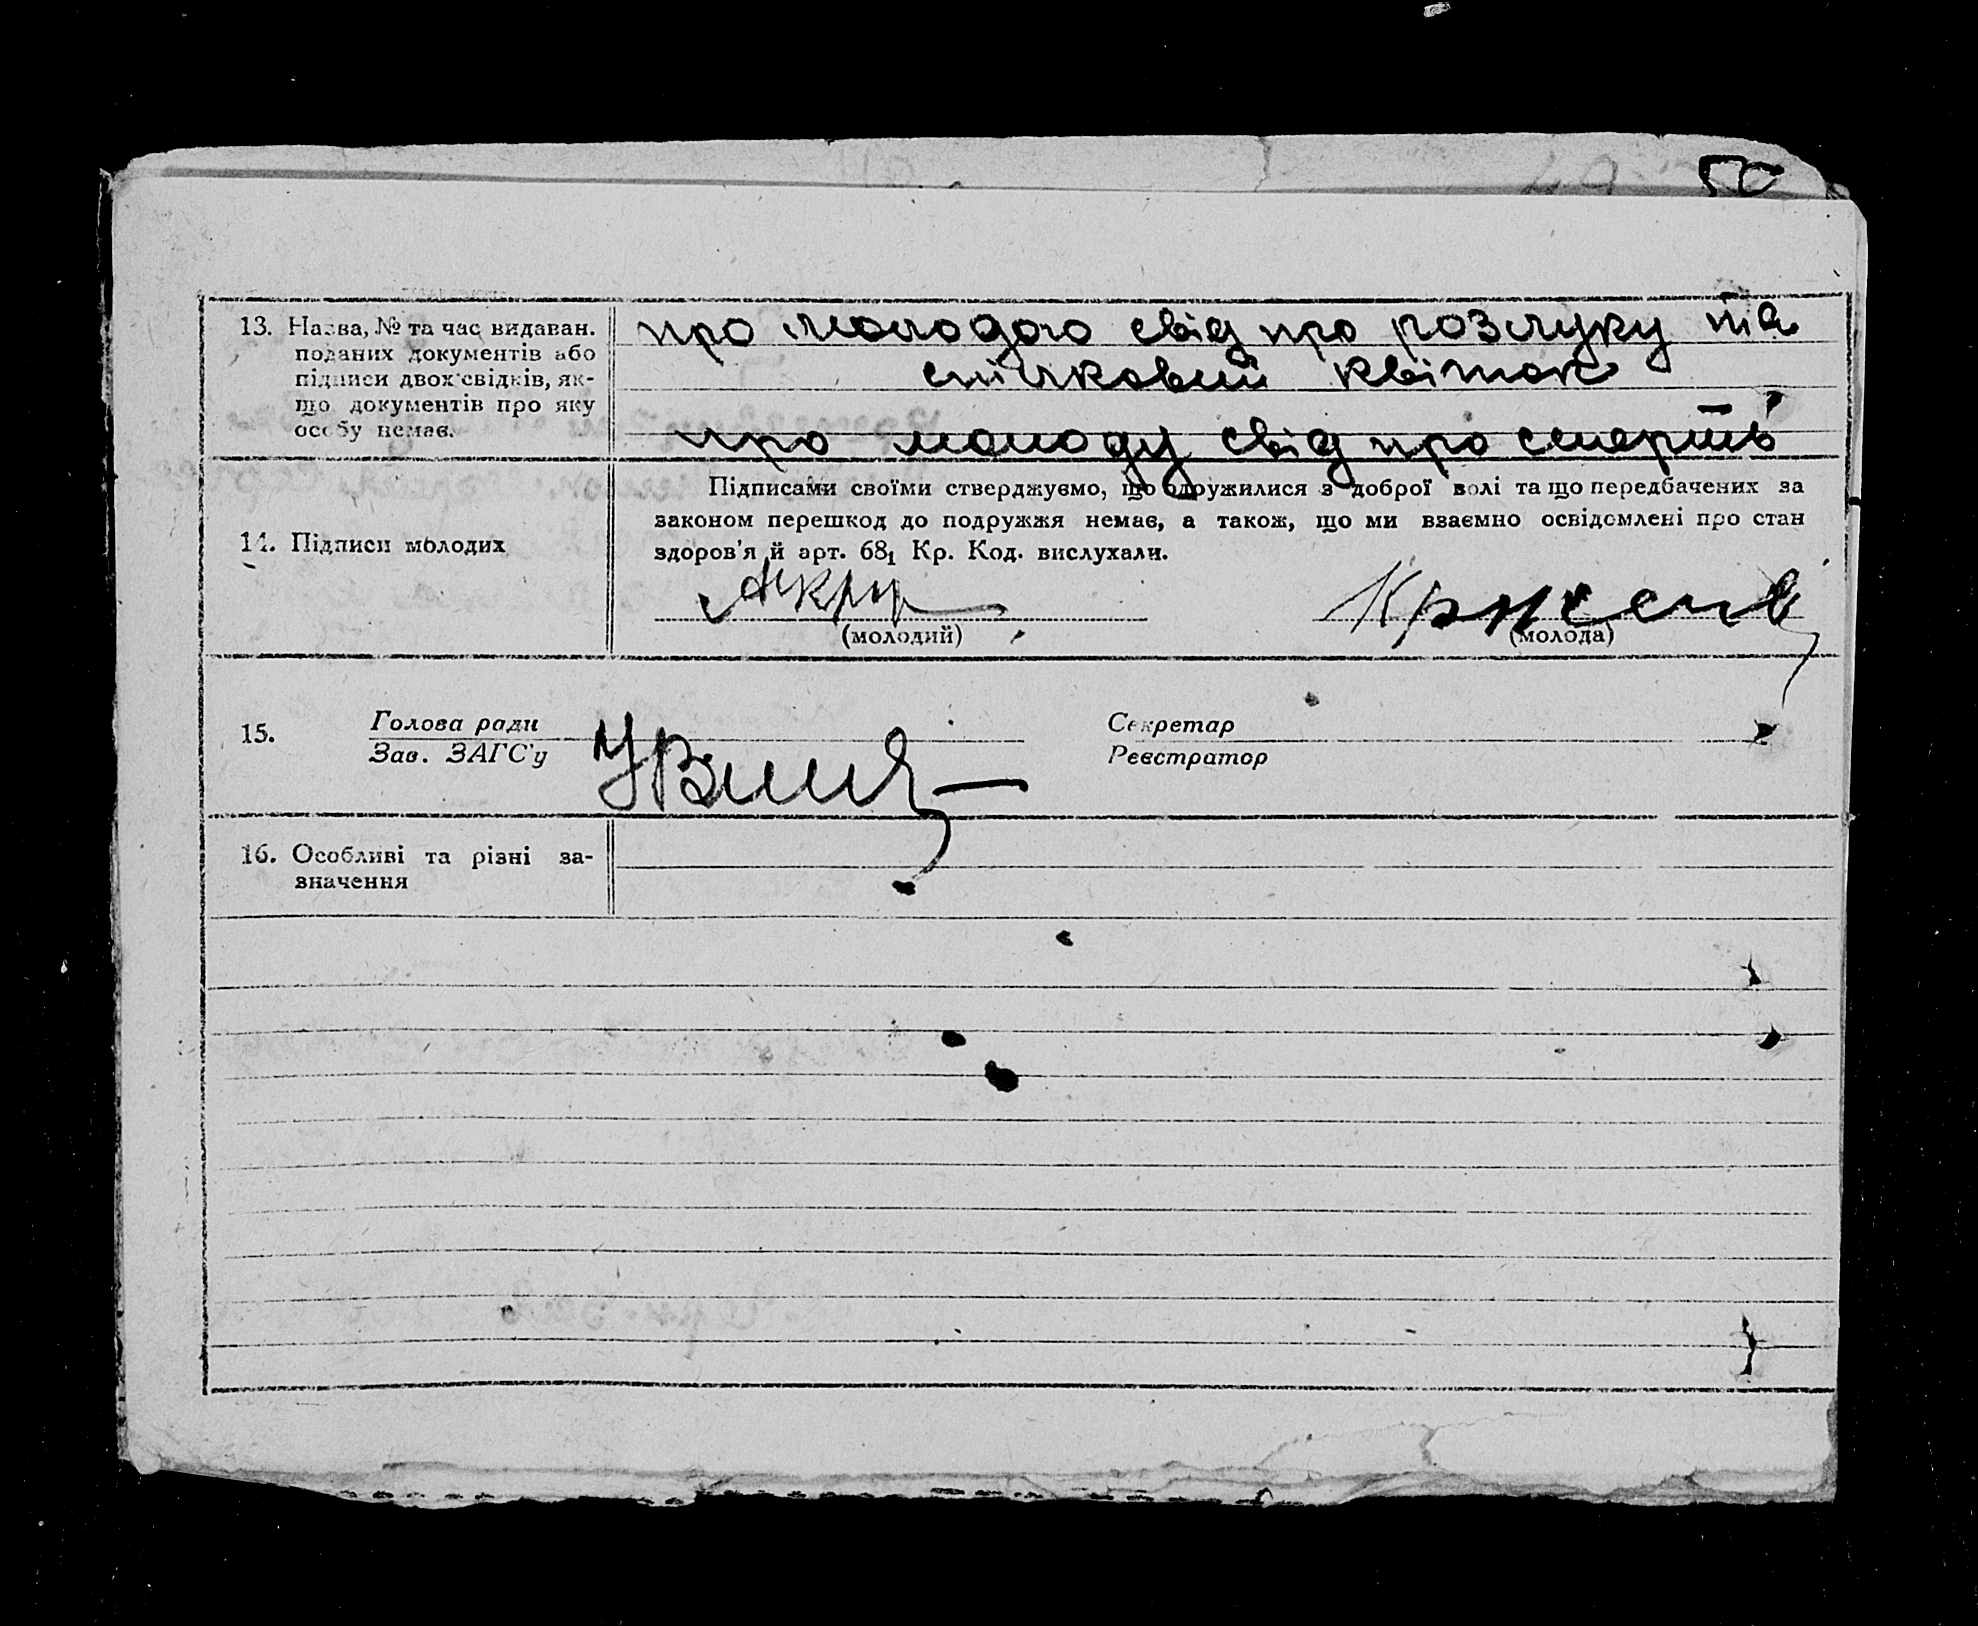 50
13. Назва, № та час видаван.
поданих документів або
підписи двох свідків, як-
що документів про яку
особу немає.
про молодого свід про розлуку та
спілковий квіток
про молоду свід про смерть
14. Підписи молодих
Підписами своїми стверджуємо, що одружилися з доброї волі та що передбачених за
законом перешкод до подружжя немає, а також, що ми взаємно освідомлені про стан
здоров'я й арт. 68₁ Кр. Код. вислухали.
(молодий)
(молода)
15.
Голова ради
Секретар
Зав. ЗАГС'у
Реєстратор
16. Особливі та різні за-
значення